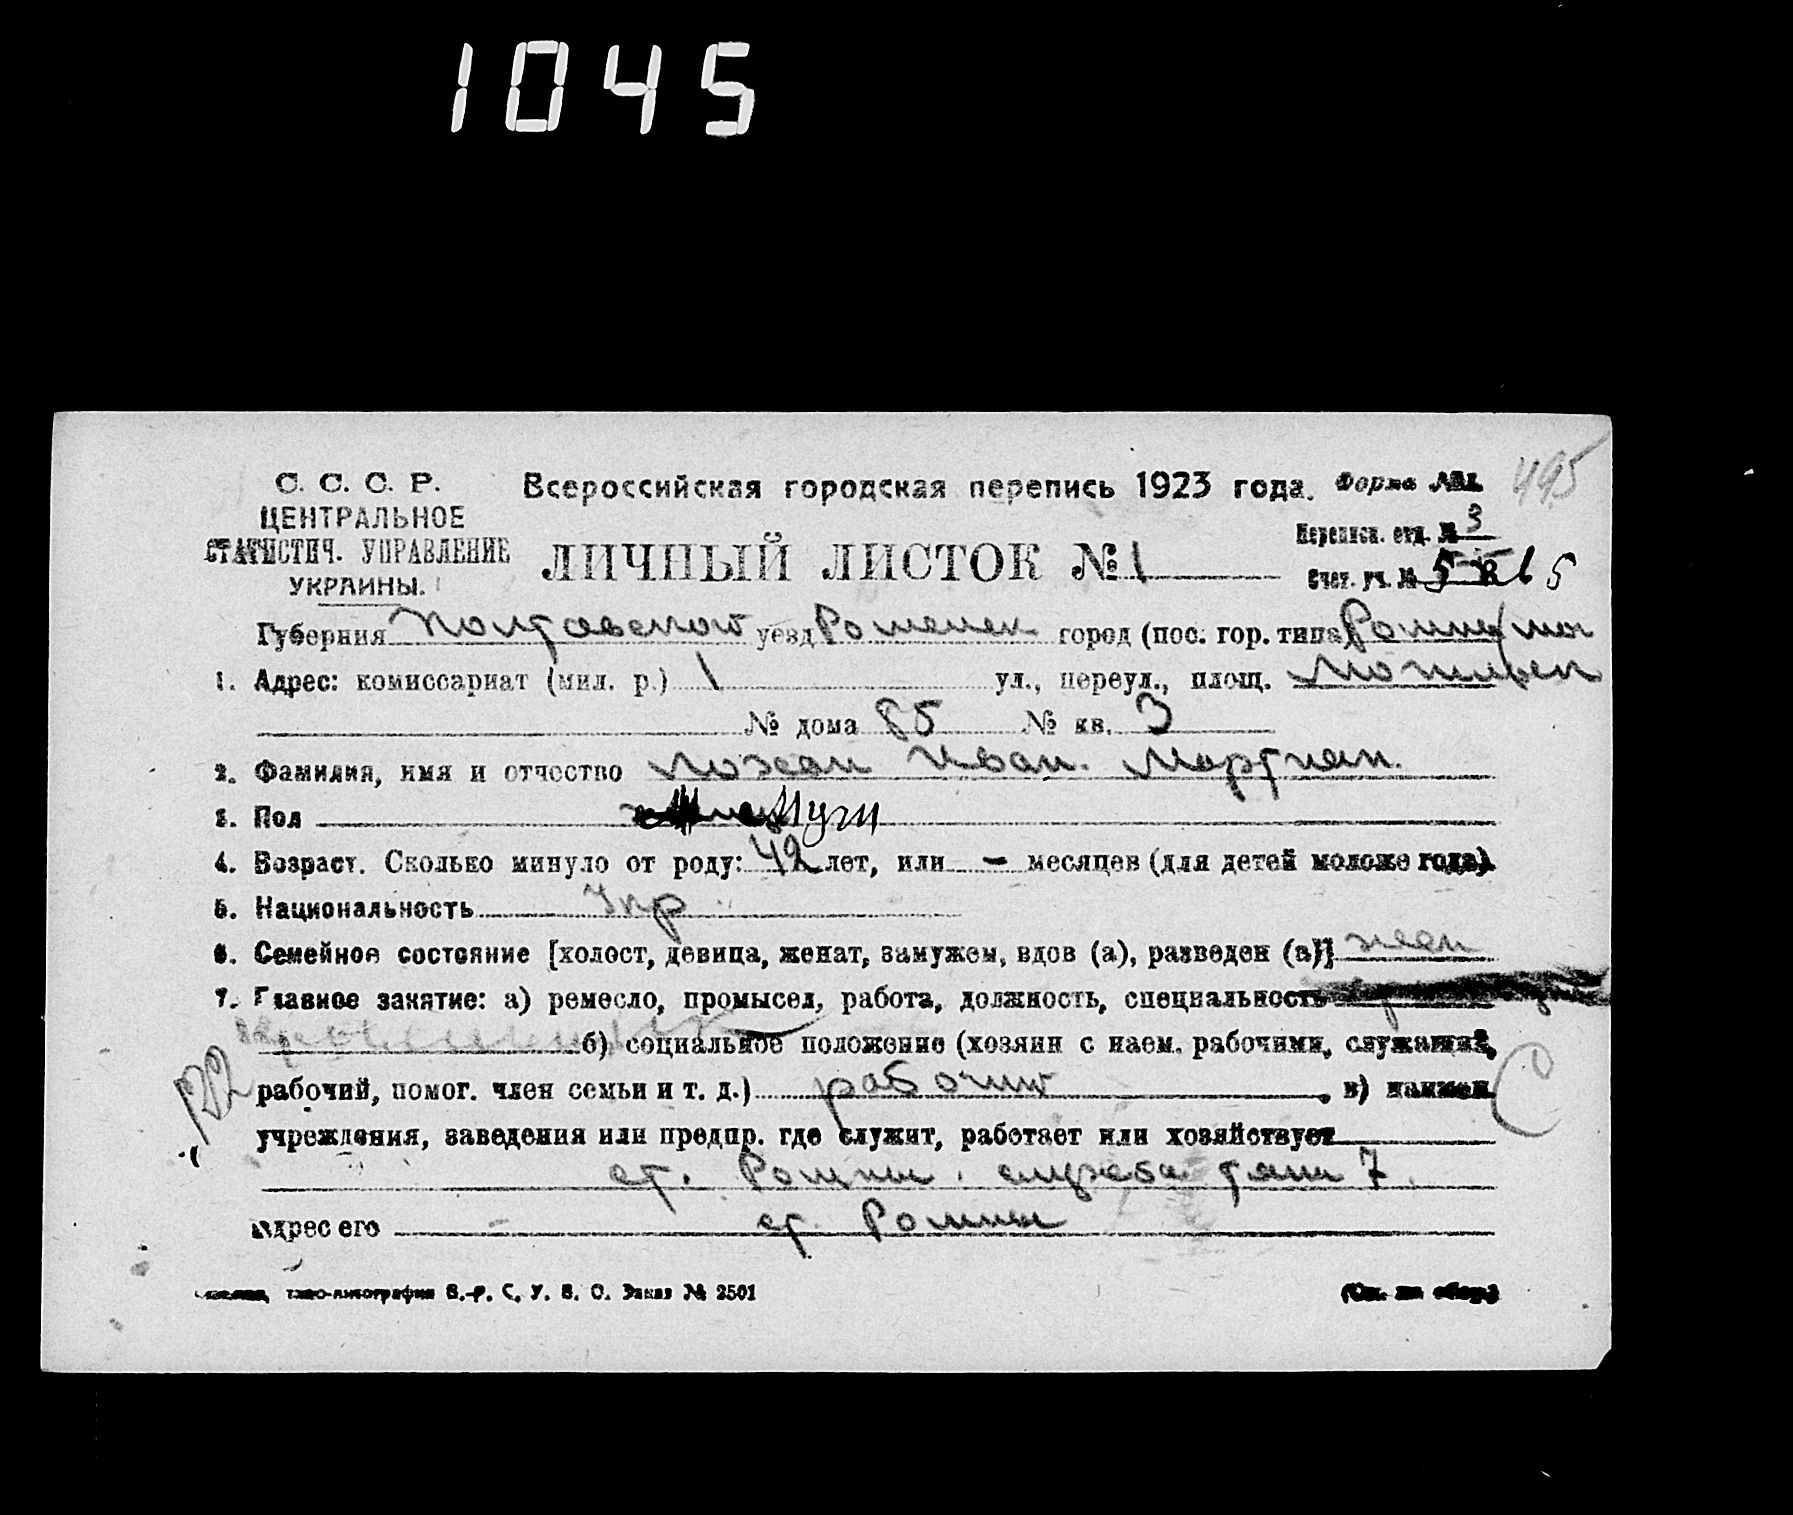 1045
С. С. С. Р.
ЦЕНТРАЛЬНОЕ
СТАТИСТИЧ. УПРАВЛЕНИЕ
УКРАИНЫ.
Всероссийская городская перепись 1923 года.
Форма №1.
495
ЛИЧНЫЙ ЛИСТОК № 1
Переписн. отд. № 3
Счет. уч. № 5
Губерния Полтавской уезд Роменск город (пос. гор. типа) Ромны
1. Адрес: комиссариат (мил. р.) 1 ул., переул., площ.
№ дома 85 № кв. 3
2. Фамилия, имя и отчество Иван. Мартиян.
3. Пол Муж
4. Возраст. Сколько минуло от роду: 42 лет, или — месяцев (для детей моложе года).
5. Национальность Укр
6. Семейное состояние [холост, девица, женат, замужем, вдов (а), разведен (а)] жен
7. Главное занятие: а) ремесло, промысел, работа, должность, специальность
б) социальное положение (хозяин с наем. рабочими, служащий,
рабочий, помог. член семьи и т. д.) рабочий, в) наимен.
учреждения, заведения или предпр. где служит, работает или хозяйствует
ст. Ромны. служба тяги 7.
адрес его ст. Ромны
типо-литография В.-Р. С. У. В. О. Заказ № 2501
(См. на обор.)